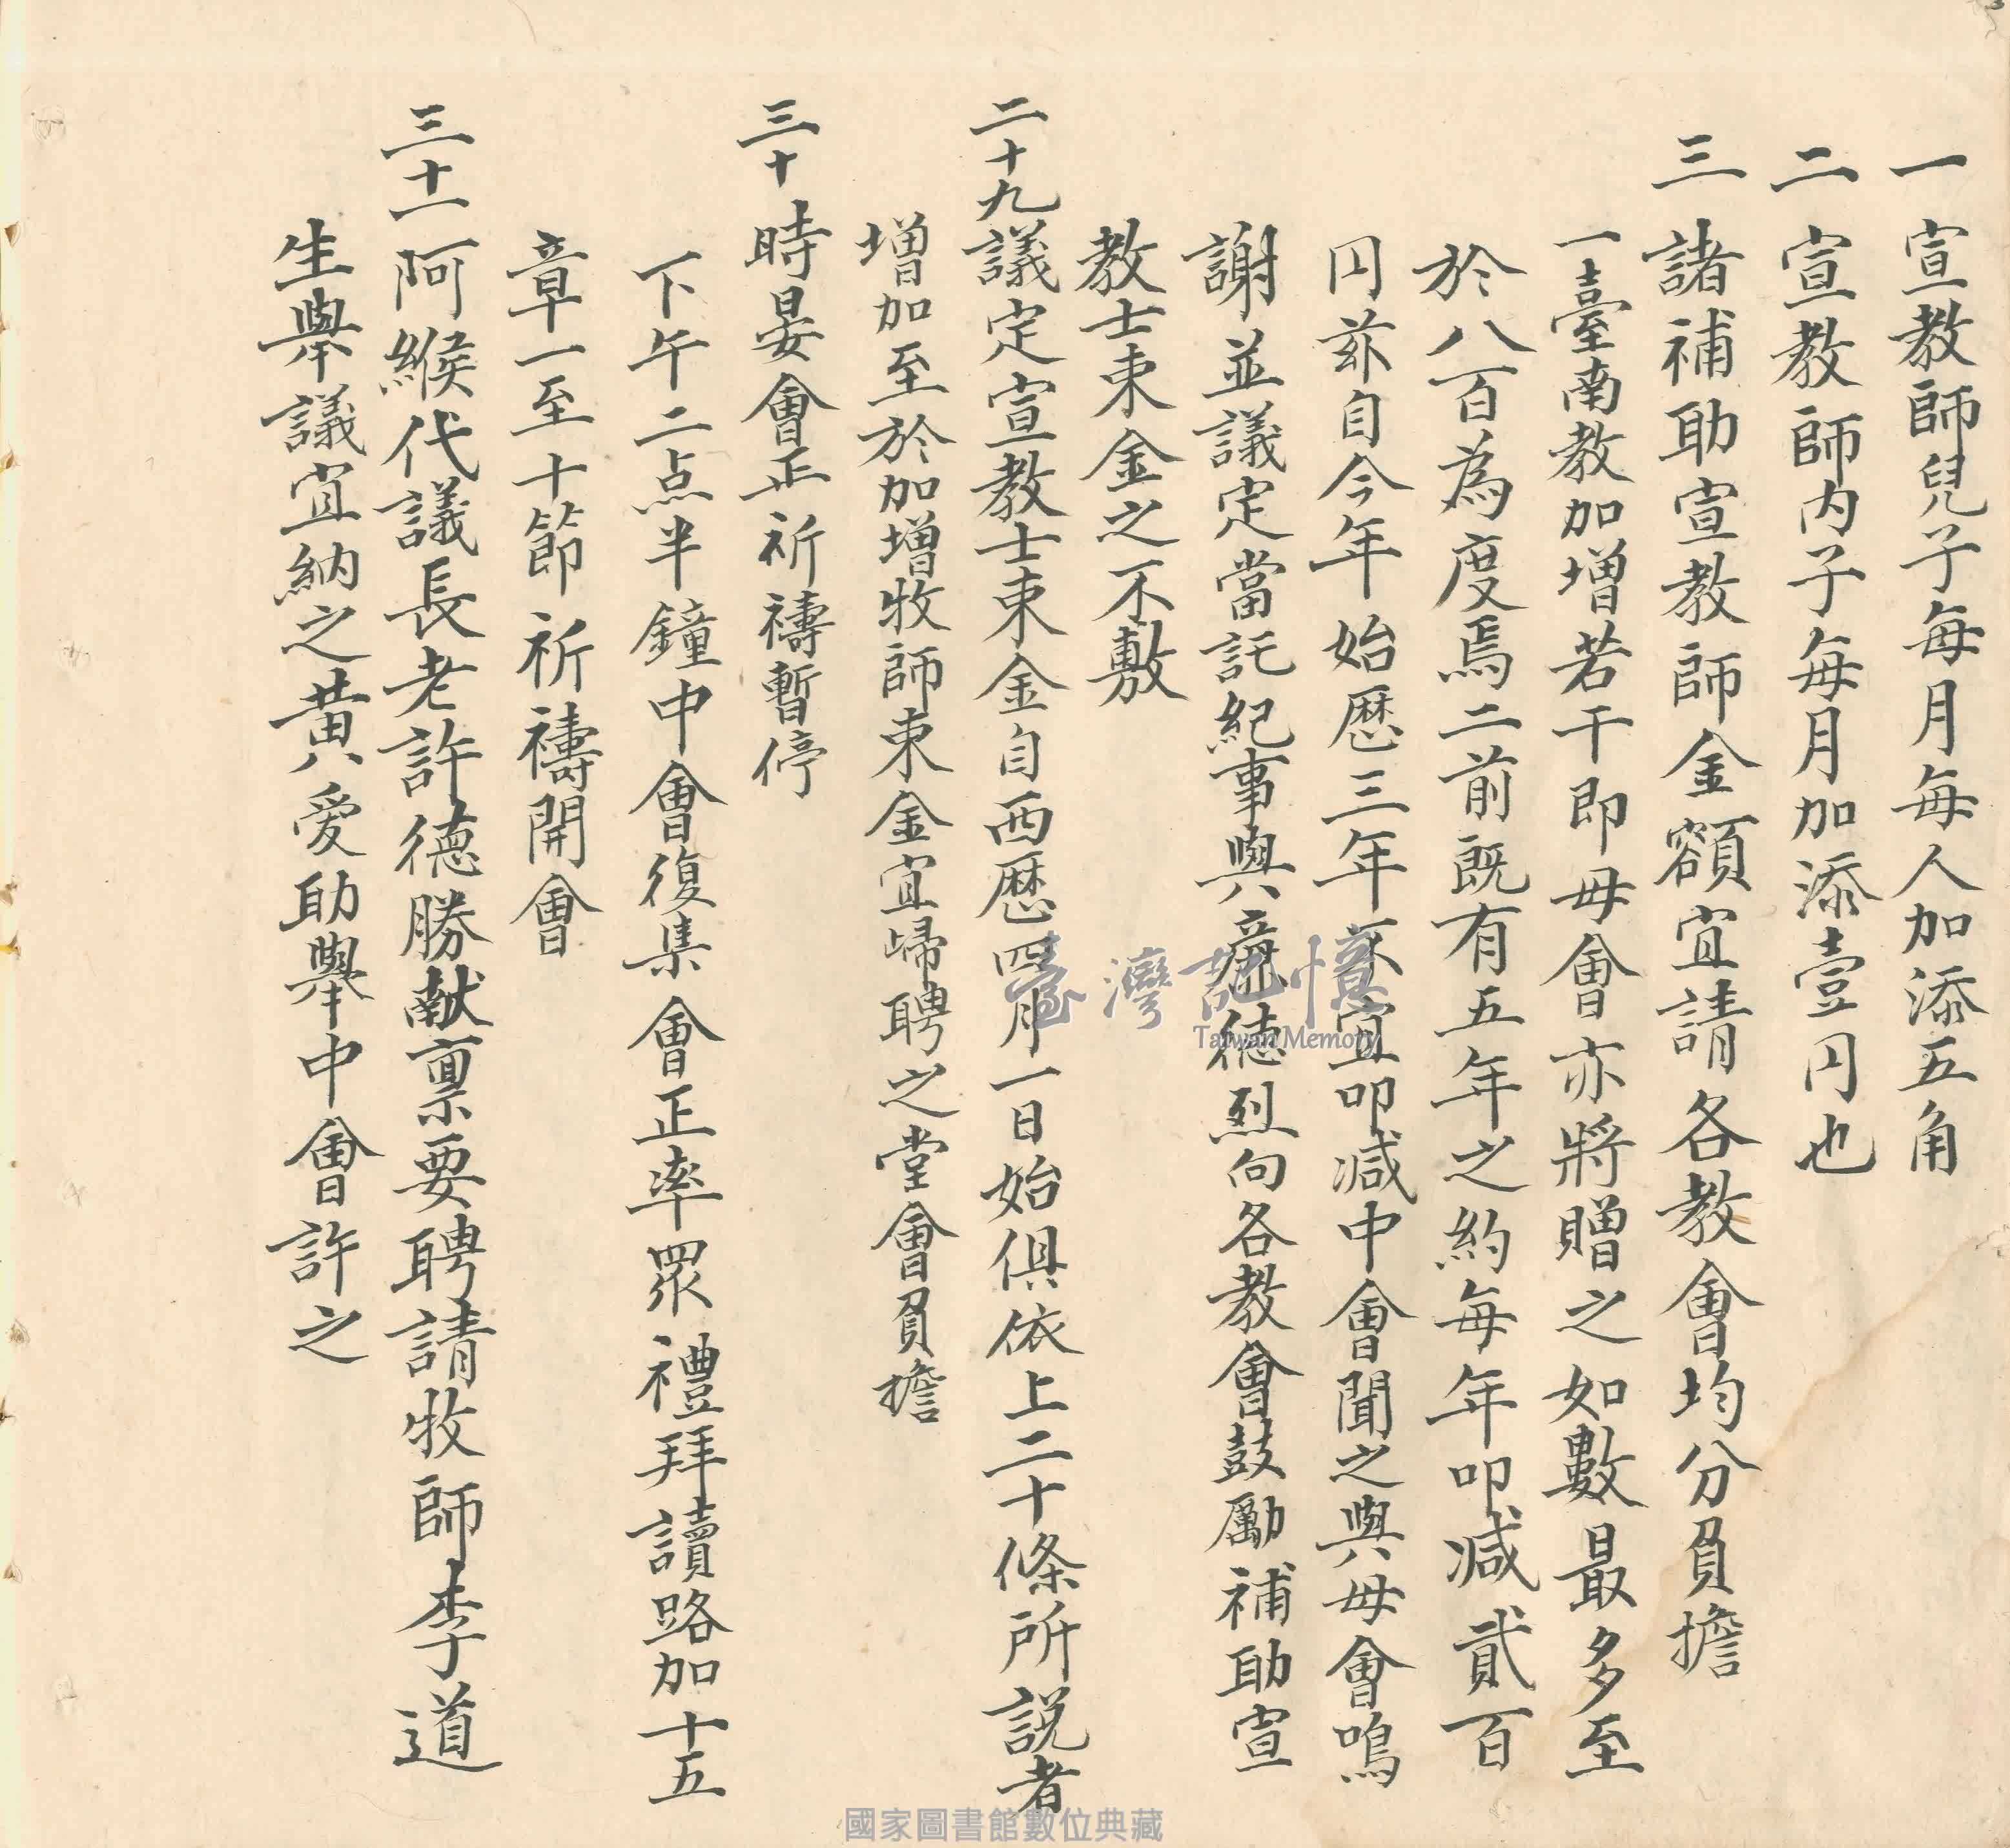 一 宣教師兒子每月每人加添五角
二 宣教師内子每月加添壹円也
三 諸補助宣教師金額宜請各教會均分負擔
一臺南教加增若干即母會亦將贈之如數最多至
於八百為度焉二前既有五年之約每年叩减貳百
円茲自今年始歷三年不宜叩减中會聞之與母會鳴
謝並議定當託紀事與 德烈向各教會鼓勵補助宣
教士束金之不敷
二十九議定宣教士束金自西歷四月一日始俱依上二十條所説者
增加至於加增牧師束金宜歸聘之堂會負擔
三十 時晏會正祈禱暫停
下午二点半鐘中會復集會正率眾禮拜讀路加十五
章一至十節祈禱開會
三十一阿緱代議長老許德勝献禀要聘請牧師李道
生舉議宜納之黄愛助舉中會許之
臺灣記憶
Taiwan Memory
國家圖書館數位典藏